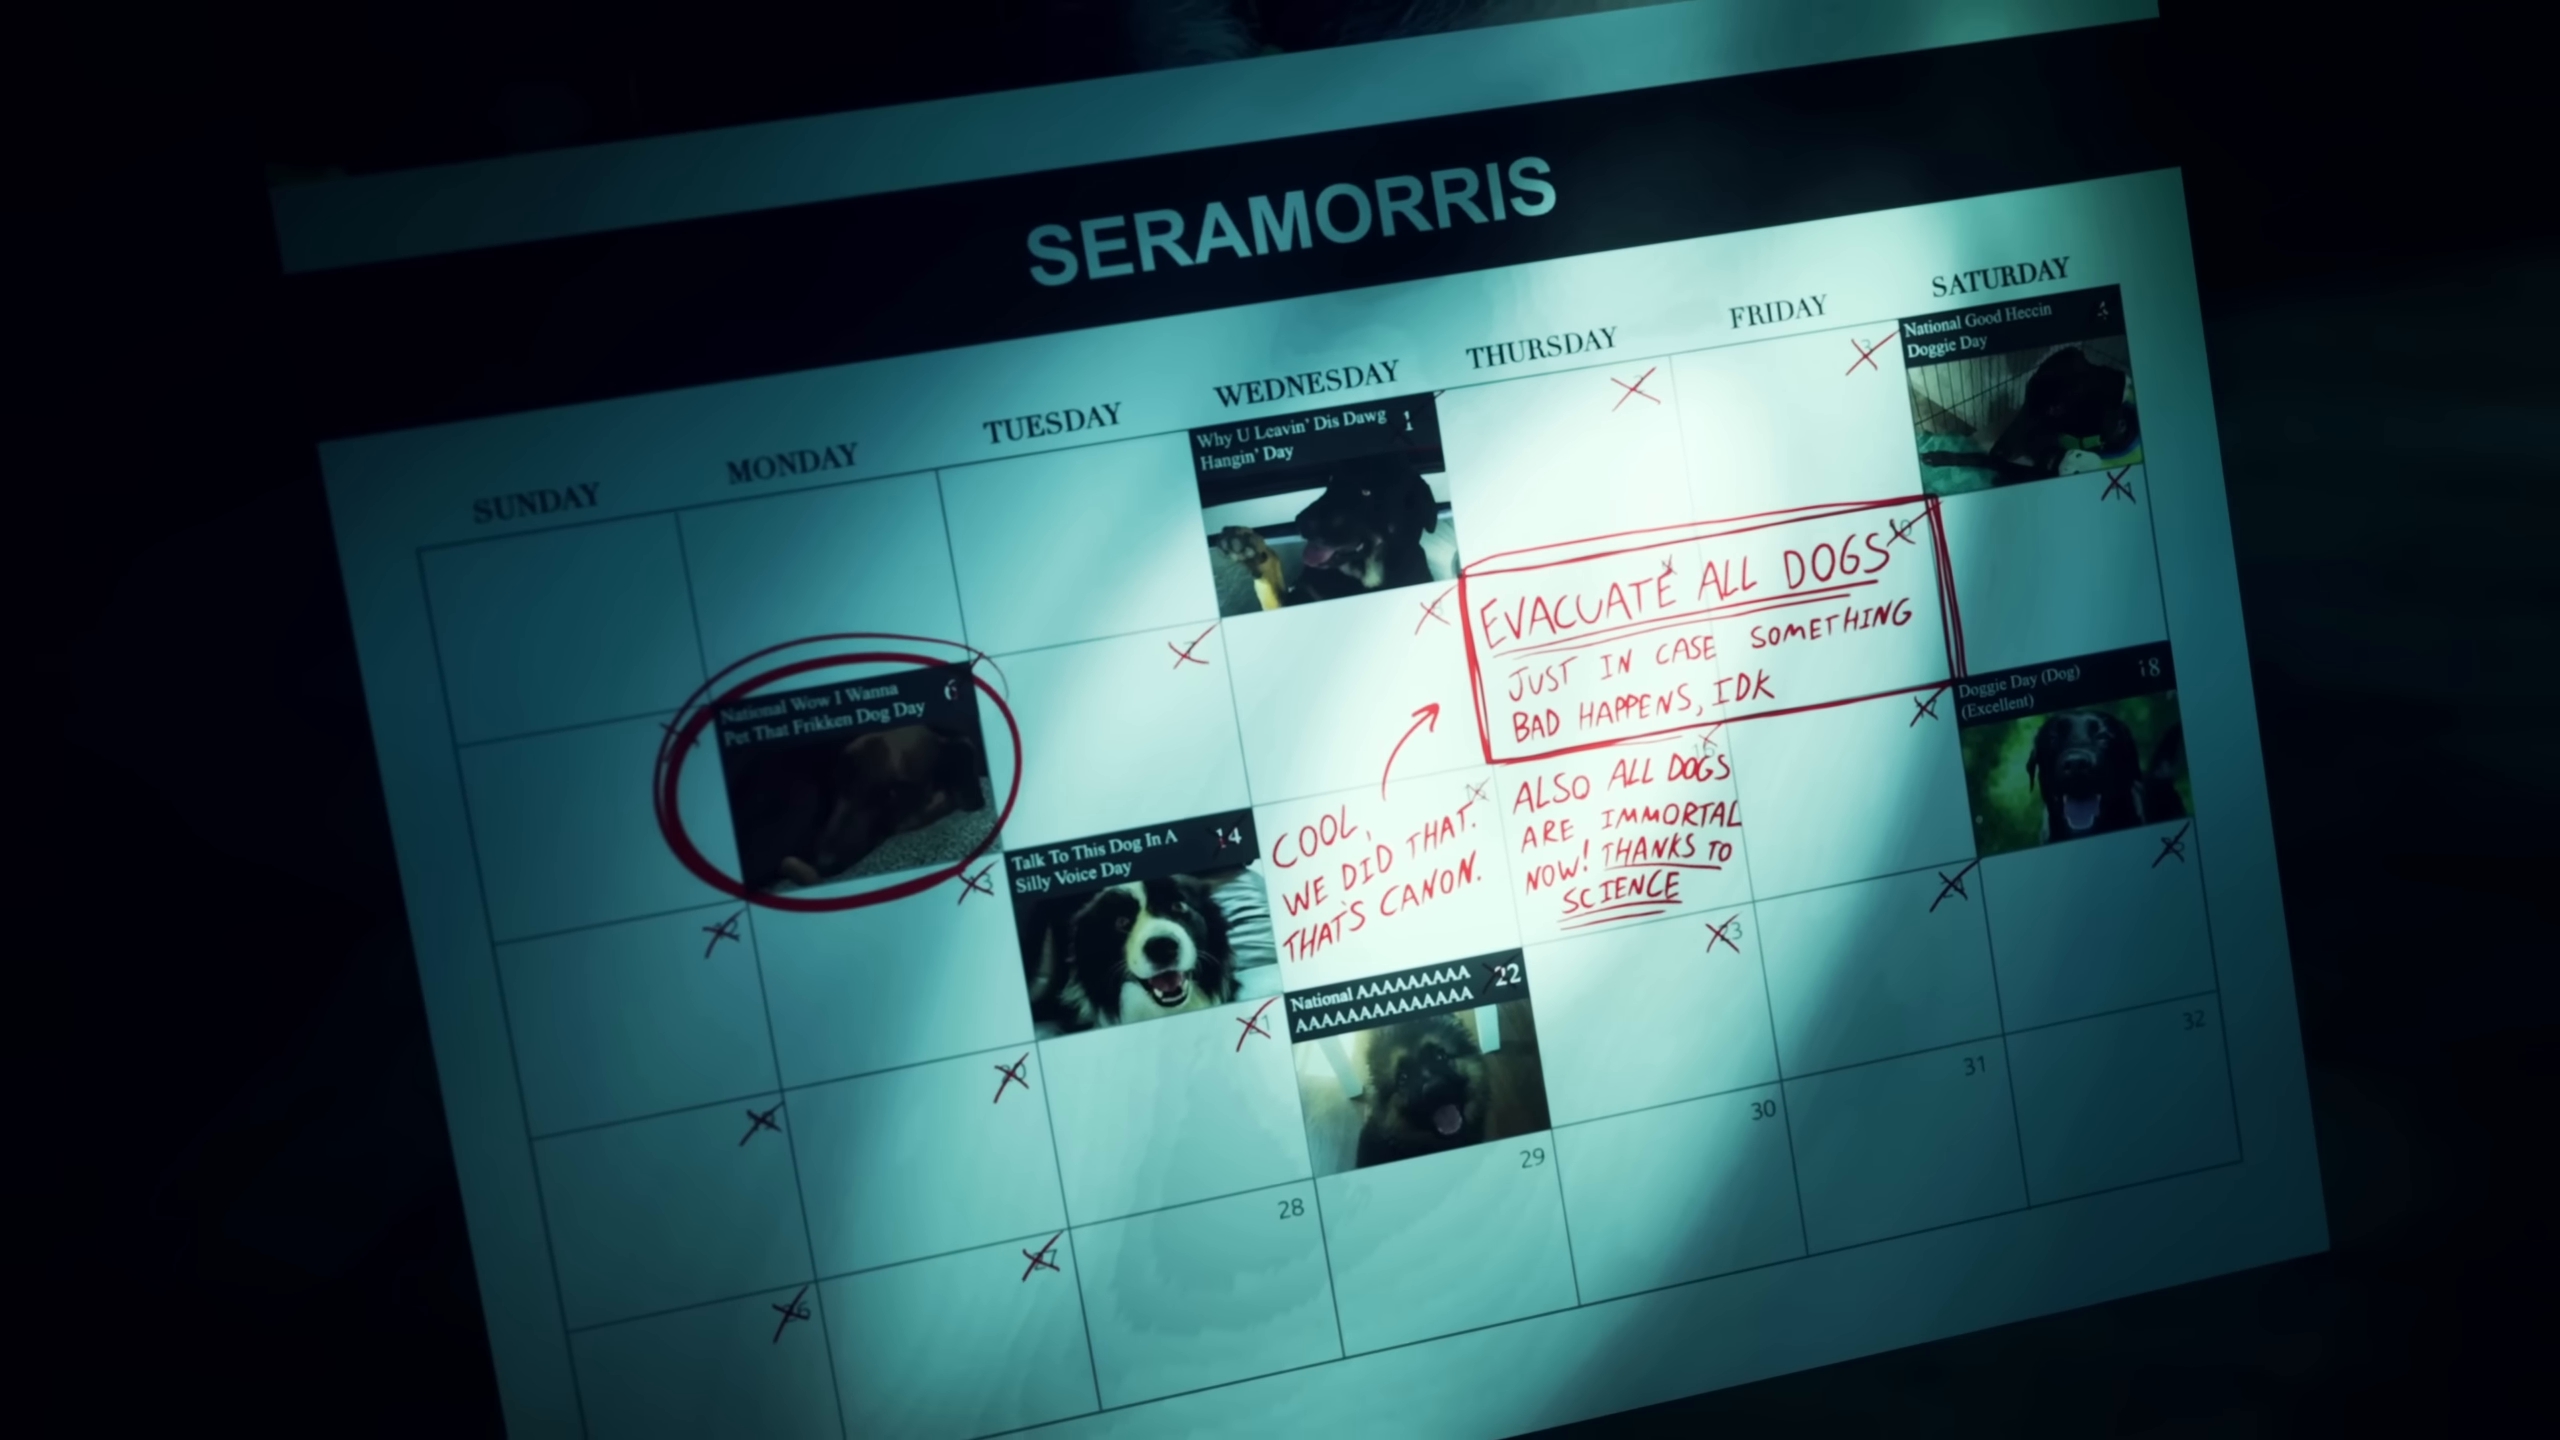 SERAMORRIS
SUNDAY
MONDAY
TUESDAY
WEDNESDAY
THURSDAY
FRIDAY
SATURDAY
Why U Leavin' Dis Dawg
Hangin' Day
1
2
3
National Good Heccin
Doggie Day
4
National Wow I Wanna
Pet That Frikken Dog Day
6
7
EVACUATE ALL DOGS
JUST IN CASE SOMETHING
BAD HAPPENS, IDK
10
11
12
13
Talk To This Dog In A
Silly Voice Day
14
COOL,
WE DID THAT.
THAT'S CANON.
16
ALSO ALL DOGS
ARE IMMORTAL
NOW! THANKS TO
SCIENCE
17
Doggie Day (Dog)
(Excellent)
18
20
21
National AAAAAAAAA
AAAAAAAAAAAAAA
22
23
24
26
27
28
29
30
31
32